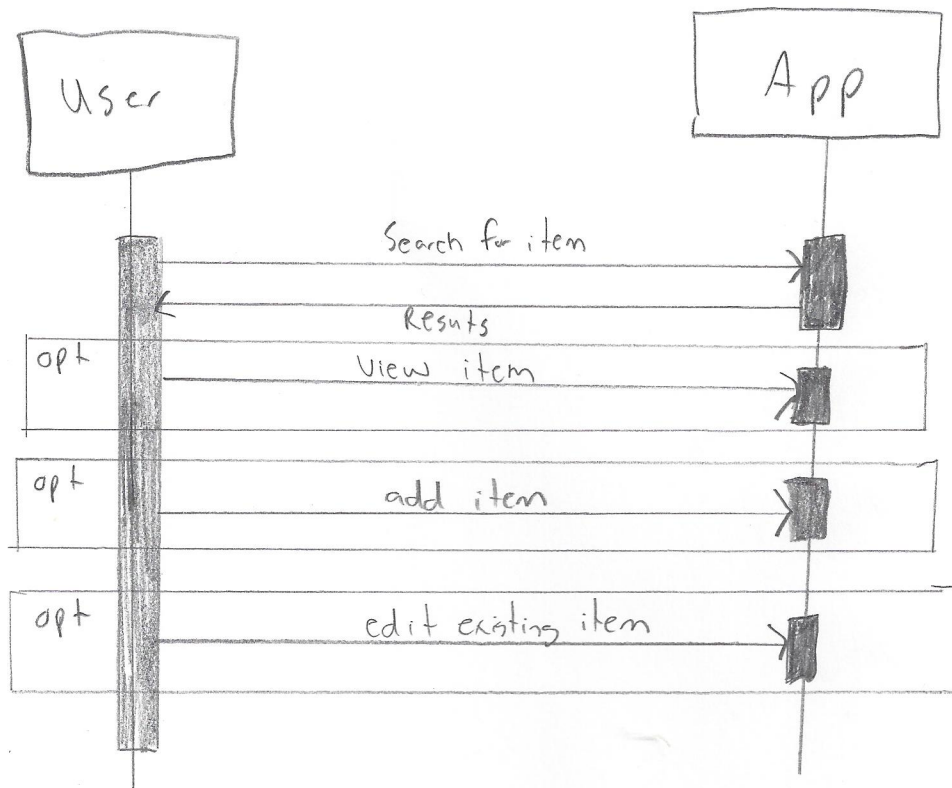 User
App
Search for item
Resuts
opt
view item
opt
add item
opt
edit existing item